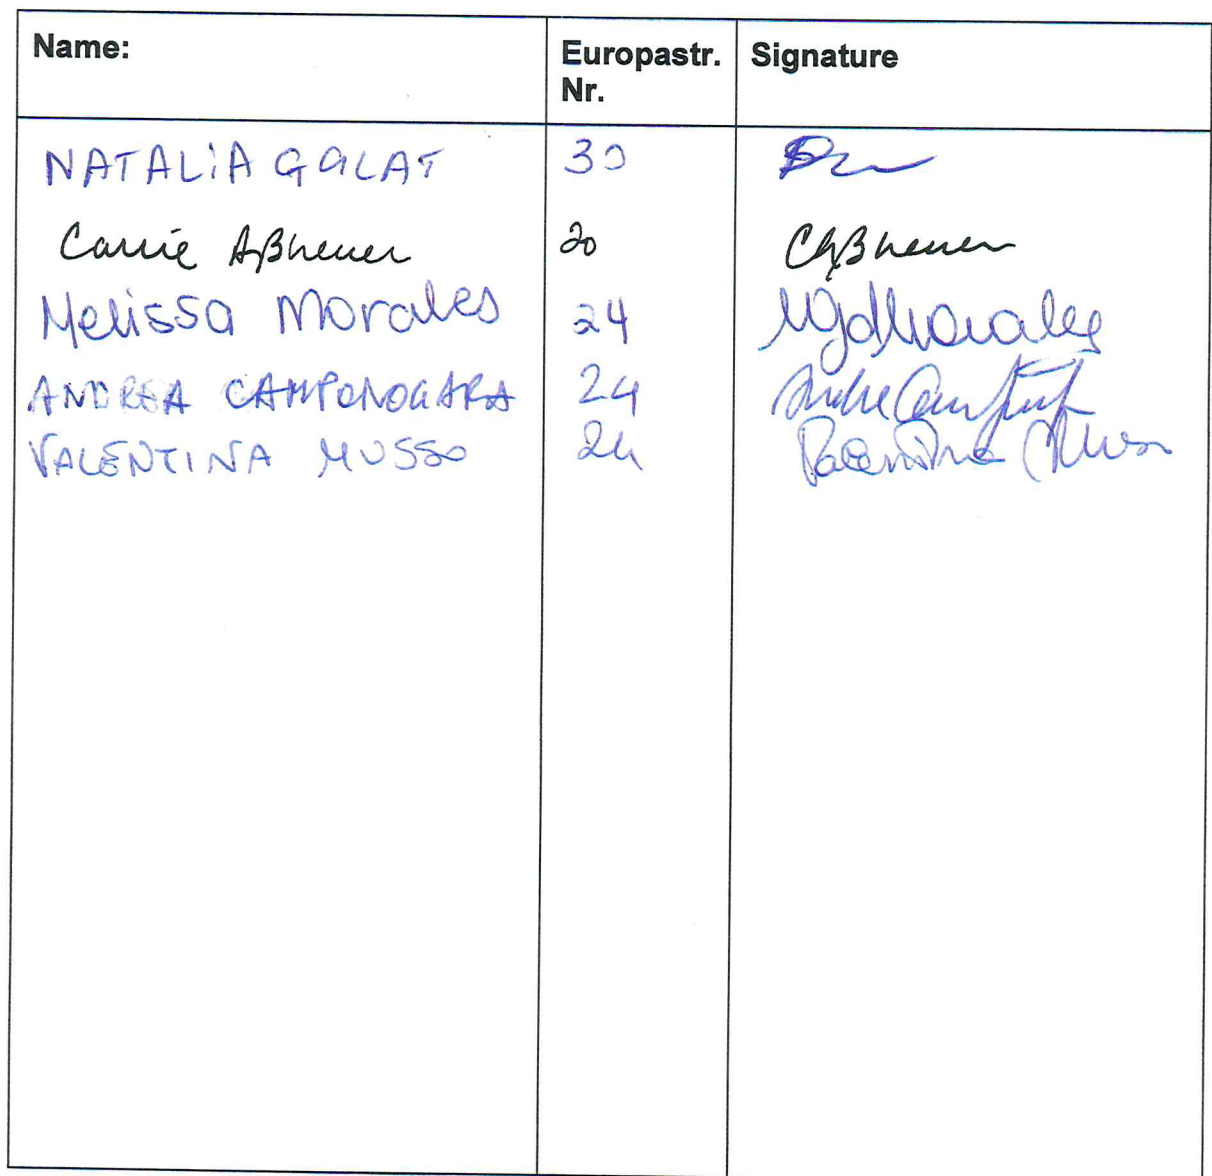 Name: Europastr. Nr. Signature
NATALIA GALAT 30
Carrie Aßheuer 20 CAßheuer
Melissa Morales 24 MgdMorales
ANDREA CAMPONOGARA 24
VALENTINA MUSSO 24 Valentina Musso